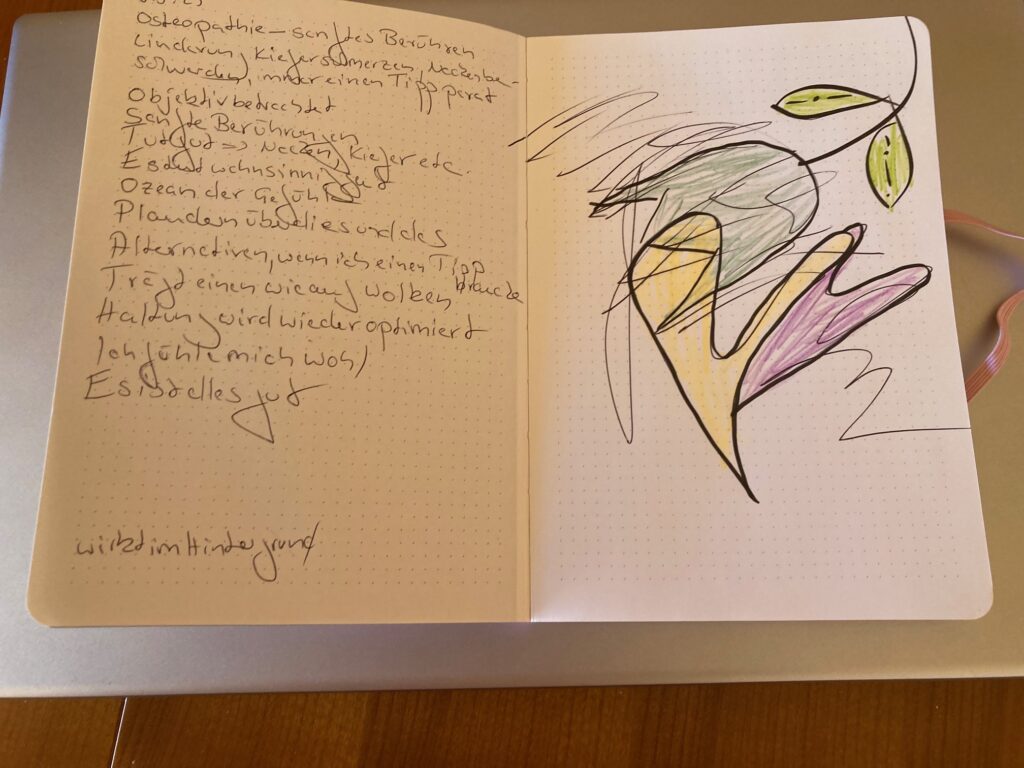 Osteopathie – sanftes Berühren
Linderung Kieferschmerzen, Nackenbe-
schwerden, immer einen Tipp parat
Objektiv betrachtet
Sanfte Berührungen
Tut gut => Nacken, Kiefer etc.
Es tut wahnsinnig gut
Ozean der Gefühle
Plaudern über dies und das
Alternativen, wenn ich einen Tipp
brauche
Trägt einen wie auf Wolken
Haltung wird wieder optimiert
Ich fühle mich wohl
Es ist alles gut
wirkt im Hintergrund